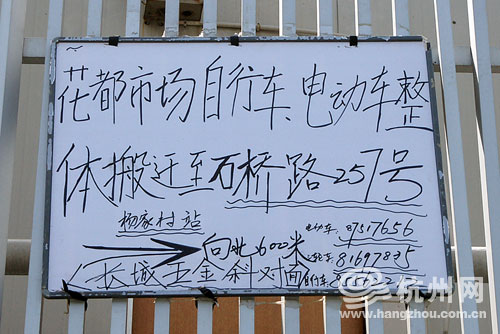 花都市场自行车、电动车整
体搬迁至石桥路257号
杨家村站
向北600米
(长城五金机电对面
电动车: 87517656
81697835
自行车:
杭州网
www.hangzhou.com.cn